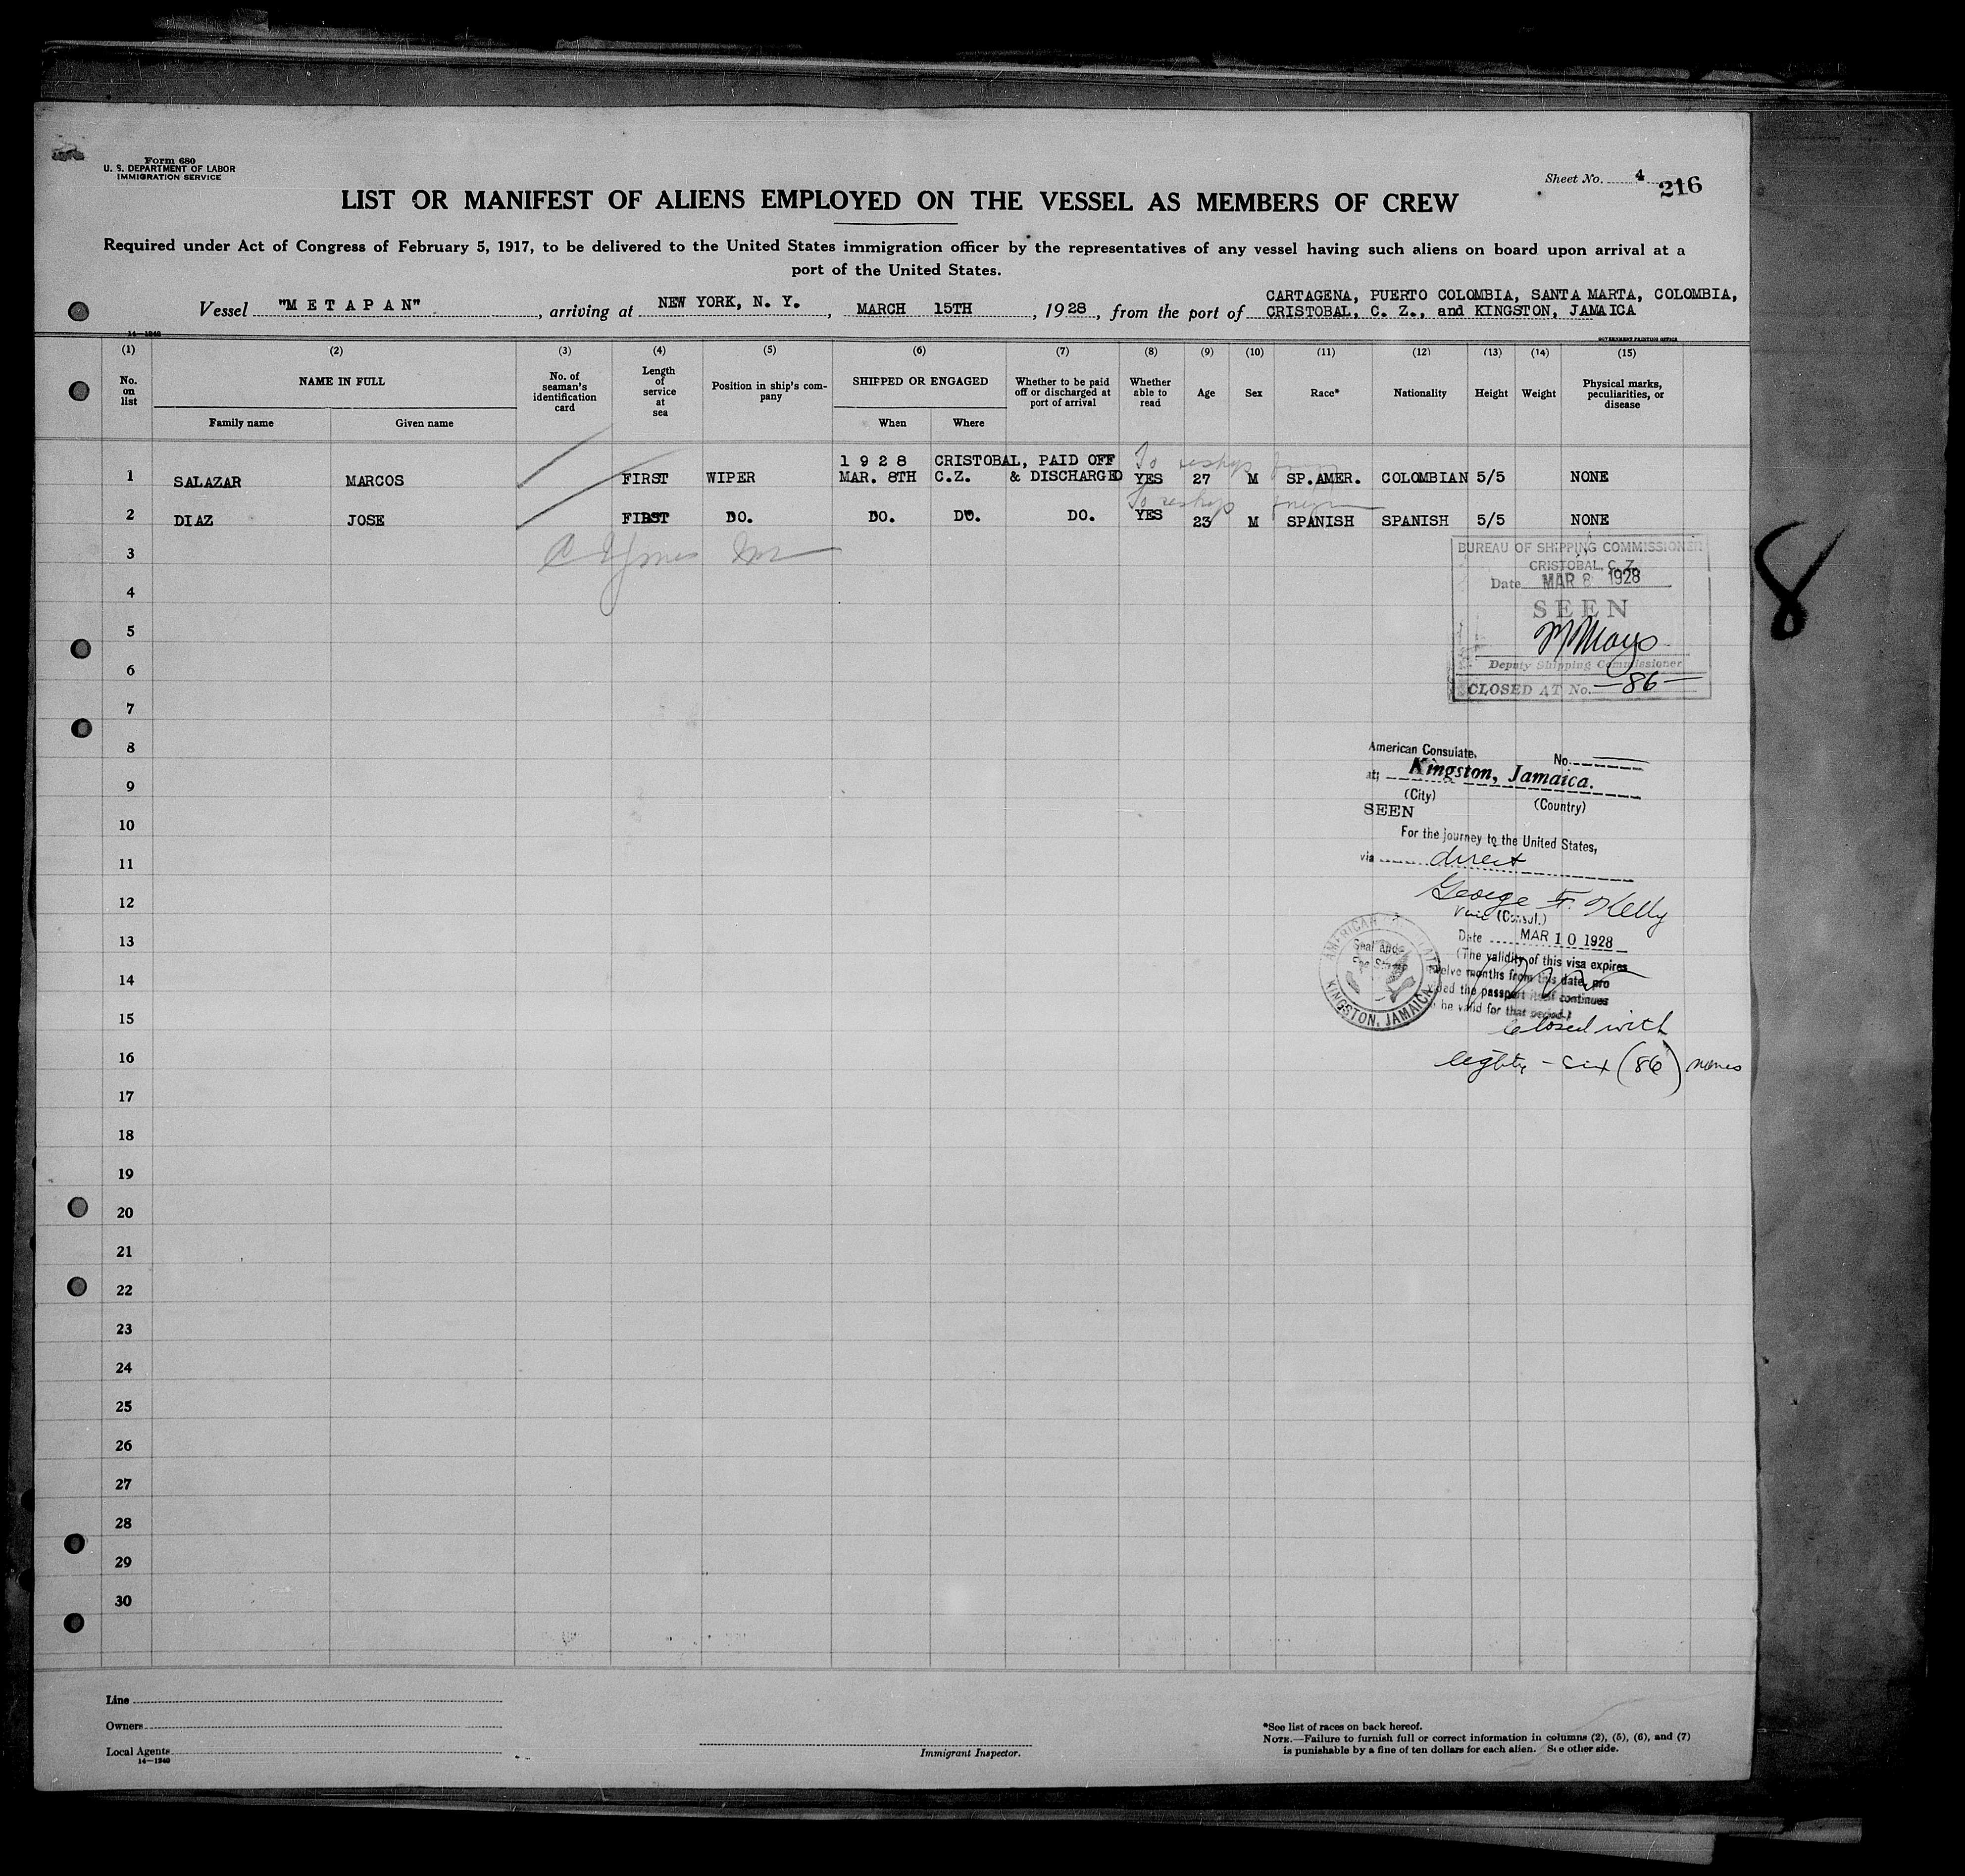 Form 680
U. S. DEPARTMENT OF LABOR
IMMIGRATION SERVICE
Sheet No. 4
216
LIST OR MANIFEST OF ALIENS EMPLOYED ON THE VESSEL AS MEMBERS OF CREW
Required under Act of Congress of February 5, 1917, to be delivered to the United States immigration officer by the representatives of any vessel having such aliens on board upon arrival at a
port of the United States.
CARTAGENA, PUERTO COLOMBIA, SANTA MARTA, COLOMBIA,
Vessel "METAPAN", arriving at NEW YORK, N. Y., MARCH 15TH, 1928, from the port of CRISTOBAL, C. Z., and KINGSTON, JAMAICA
14—1240
GOVERNMENT PRINTING OFFICE
(1) (2) (3) (4) (5) (6) (7) (8) (9) (10) (11) (12) (13) (14) (15)
No. on list
NAME IN FULL
Family name
Given name
No. of seaman's identification card
Length of service at sea
Position in ship's company
SHIPPED OR ENGAGED
When
Where
Whether to be paid off or discharged at port of arrival
Whether able to read
Age
Sex
Race*
Nationality
Height
Weight
Physical marks, peculiarities, or disease
1928 CRISTOBAL, PAID OFF To reship
1 SALAZAR MARCOS FIRST WIPER MAR. 8TH C.Z. & DISCHARGED YES 27 M SP.AMER. COLOMBIAN 5/5 NONE
To reship foreign
2 DIAZ JOSE FIRST DO. DO. DO. DO. YES 23 M SPANISH SPANISH 5/5 NONE
3
4
5
6
7
8
9
10
11
12
13
14
15
16
17
18
19
20
21
22
23
24
25
26
27
28
29
30
BUREAU OF SHIPPING COMMISSIONER
CRISTOBAL, C. Z.
Date MAR 8 1928
SEEN
Deputy Shipping Commissioner
CLOSED AT No. —86—
8
American Consulate, No.
at; Kingston, Jamaica.
(City) (Country)
SEEN
For the journey to the United States,
via direct
George F. Kelly
Vice (Consul.)
Date MAR 10 1928
(The validity of this visa expires
twelve months from this date, pro
vided the passport itself continues
to be valid for that period.)
AMERICAN CONSULATE
Seal and
Fee Stamp
KINGSTON, JAMAICA
Closed with
eighty-six (86) names
Line
Owners
Local Agents
14—1240
Immigrant Inspector.
*See list of races on back hereof.
NOTE.—Failure to furnish full or correct information in columns (2), (5), (6), and (7)
is punishable by a fine of ten dollars for each alien. See other side.